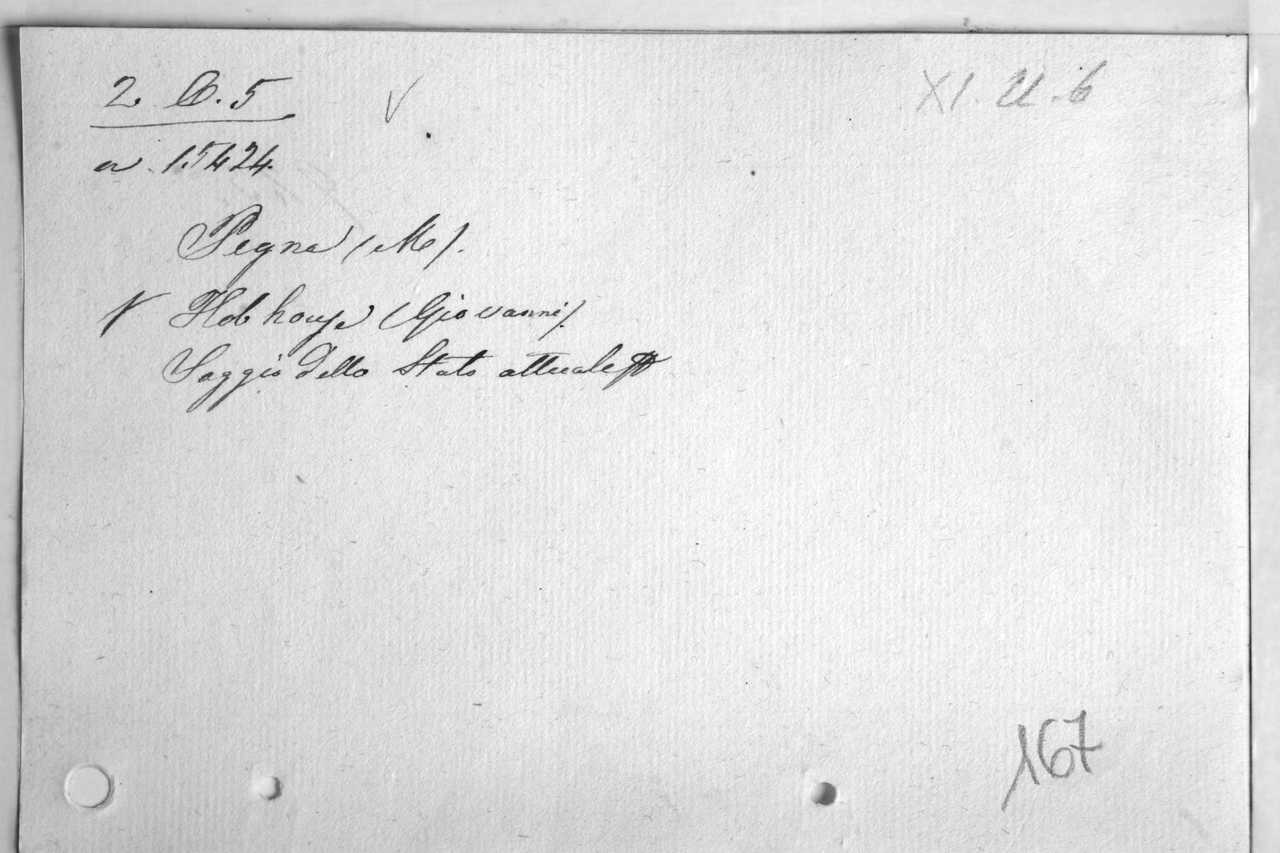 2. B. 5
XI. U. 6
n. 15424.
Pegna (M).
Hobhouse (Giovanni).
Saggio dello Stato attuale
167